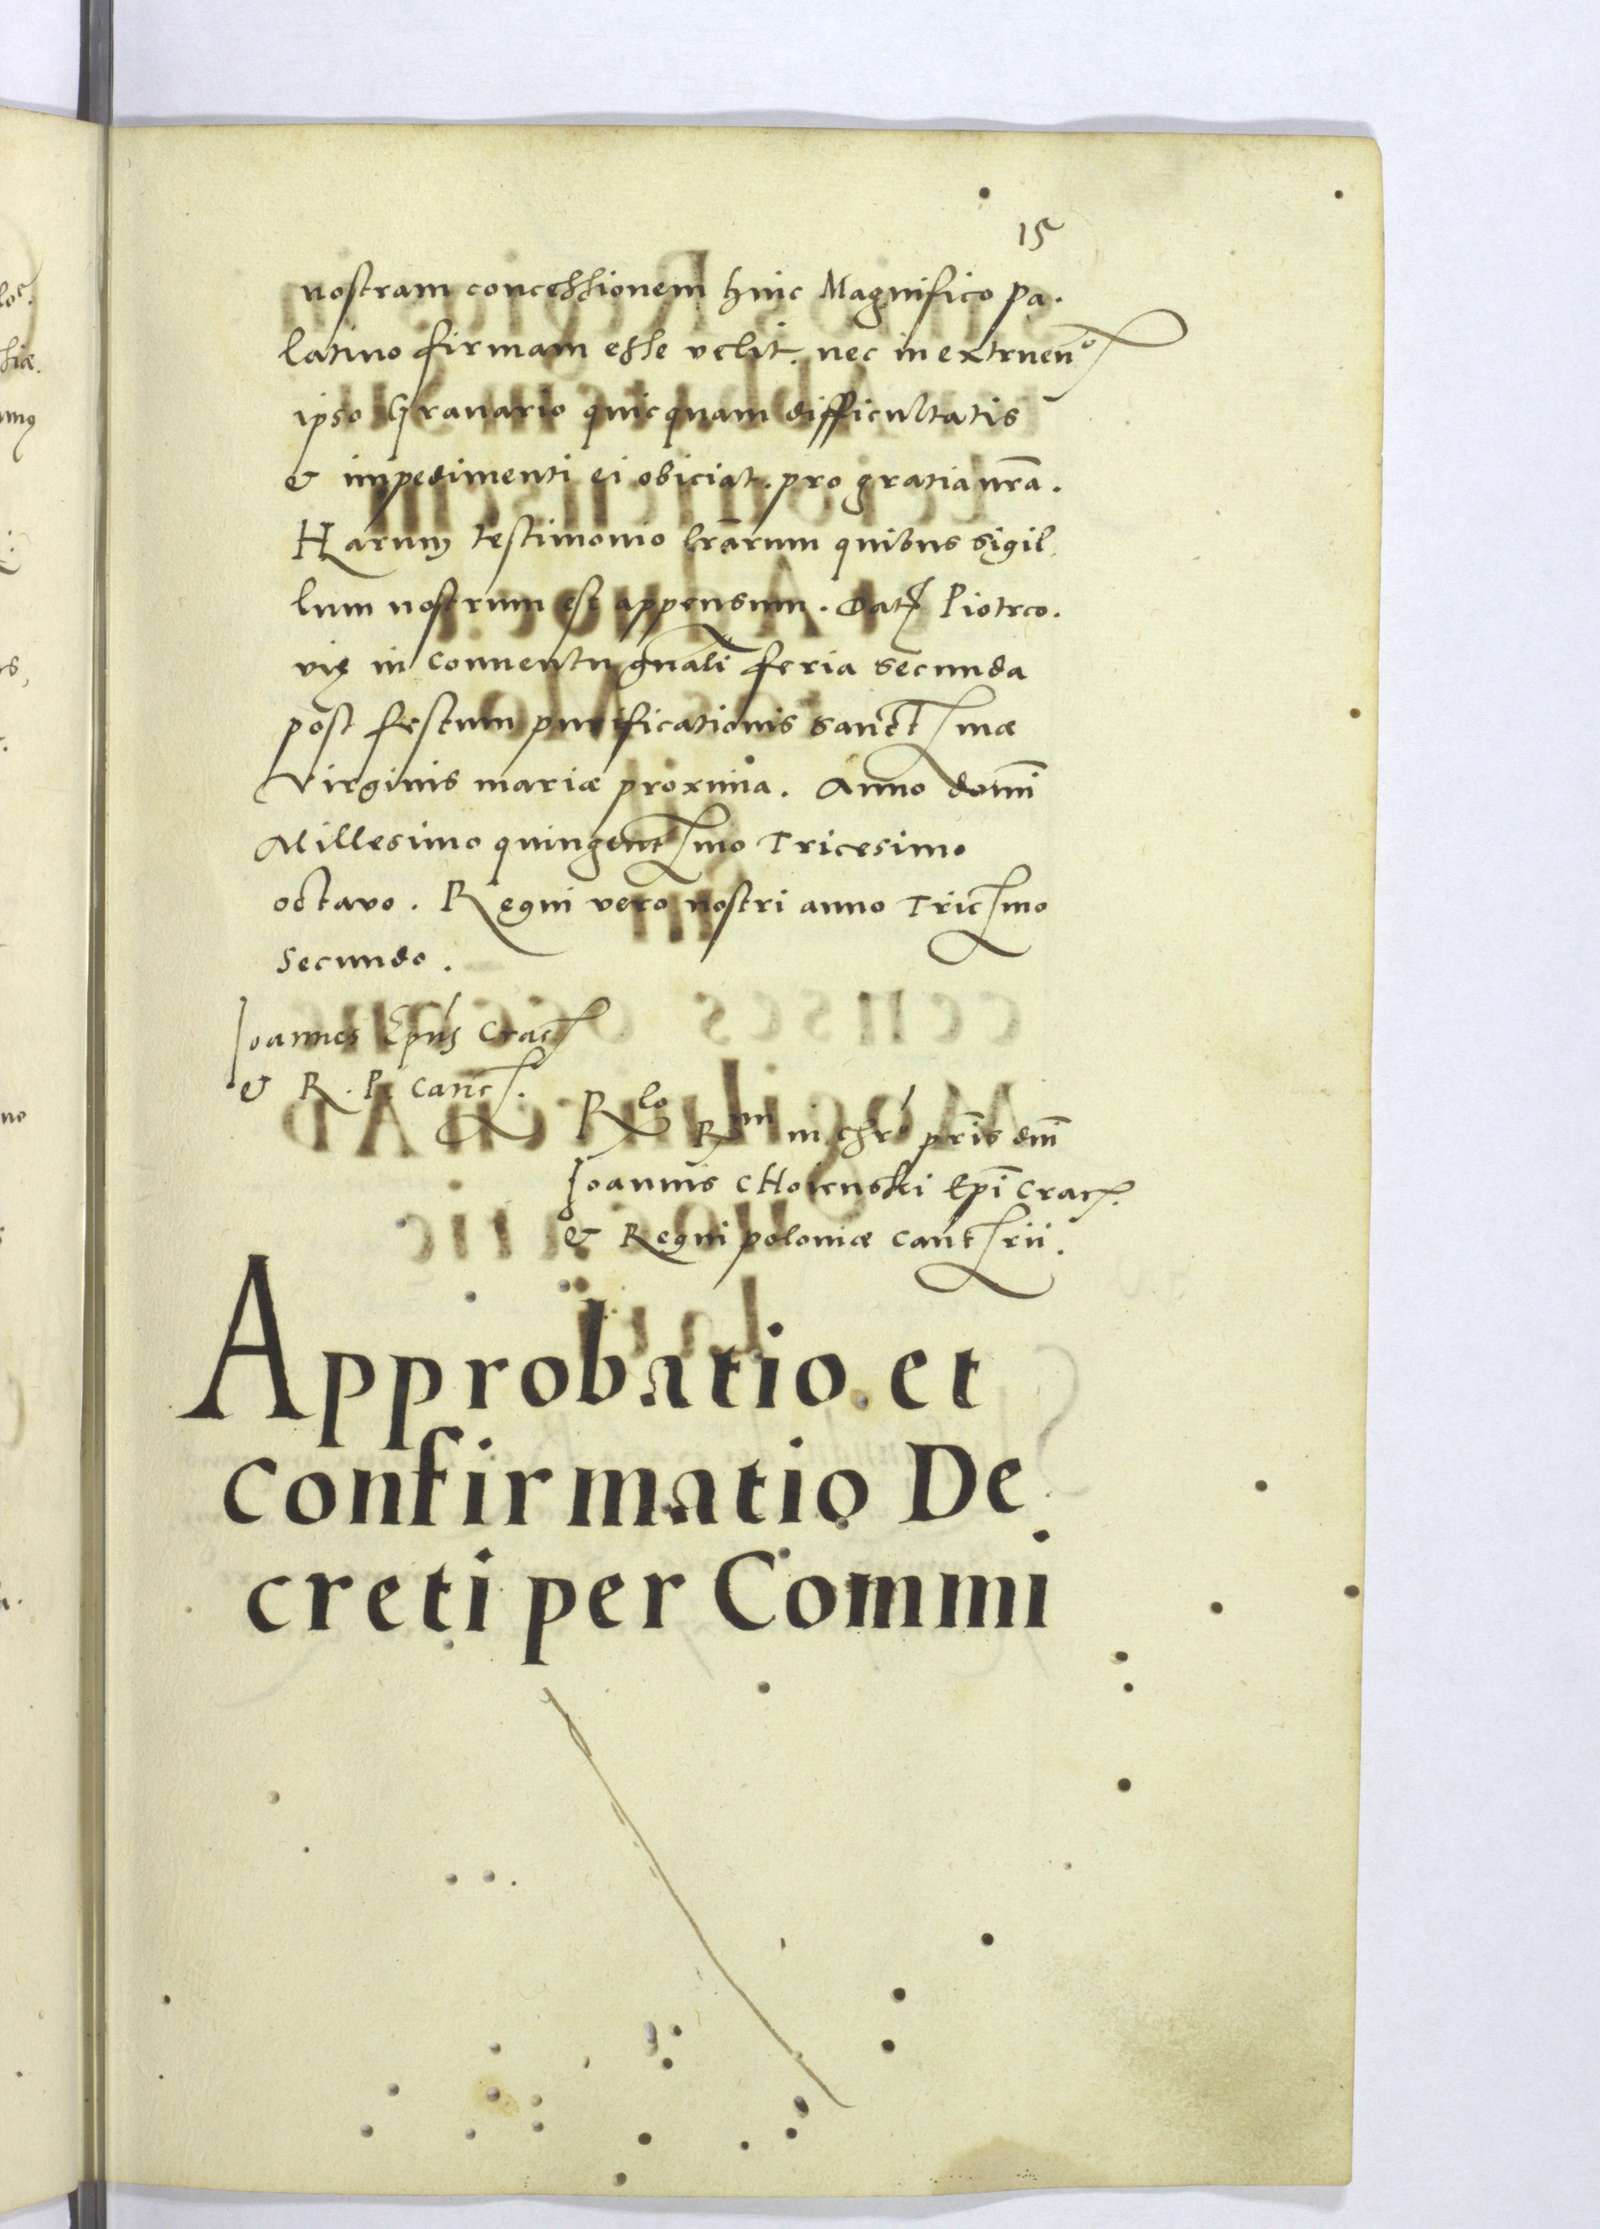 15
nostram concessionem huic Magnifico pa.
latino firmam esse velit. nec in extruen°
ipso Granario quicquam difficultatis
& impedimenti ei obiciat. pro gratia nr̃a.
Harum testimonio lr̃arum quibus sigil
lum nostrum est appensum. Dat Piotrco.
vię in conventu gn̄ali feria secunda
post festum purificationis sanct mæ
Virginis mariæ proxima. Anno domī
Millesimo quingent mo Tricesimo
octavo. Regni vero nostri anno Tric mo
secundo.
Joannes Ep̄us Crac
& R. P. Canc.
Rlo Rmi in chrõ pr̄is dn̄i
Joannis CHoienski Ep̄i Crac.
& Regni poloniæ cant rii.
Approbatio et
confirmatio De
creti per Commi